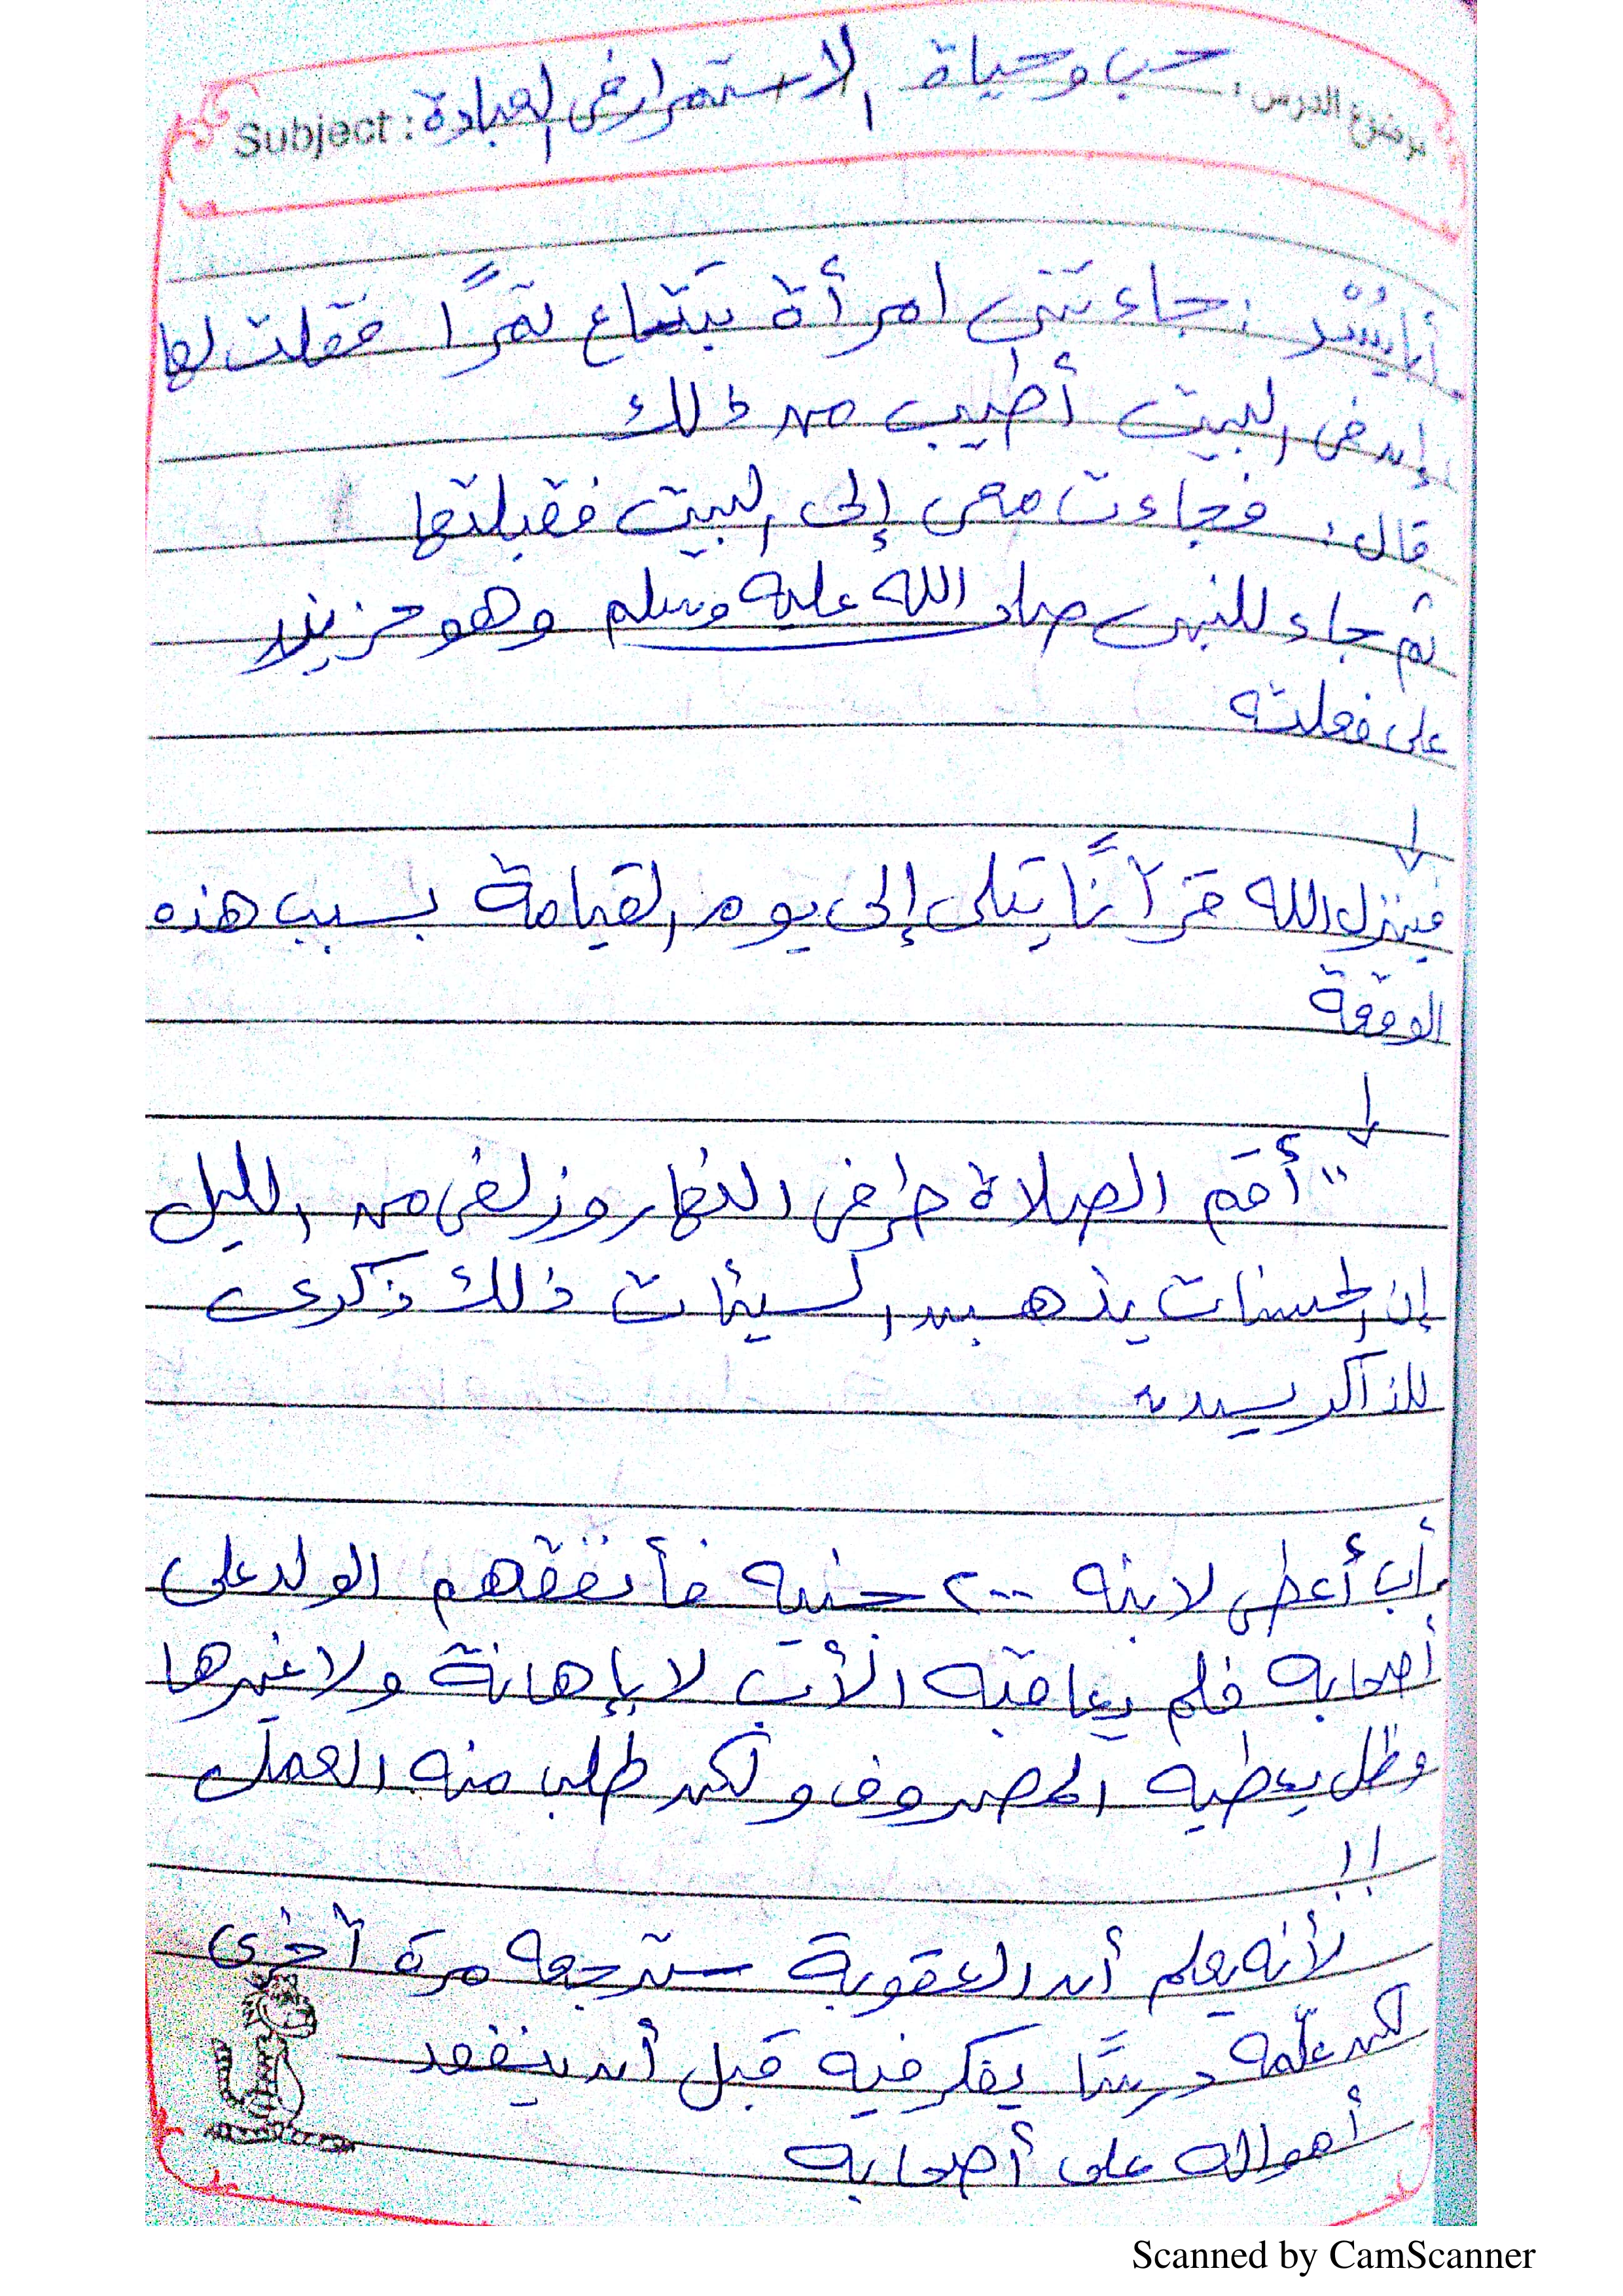 موضوع الدرس: حب وحياة الاستمرار فى العبادة Subject:
أبا يُسْر: جاءتنى امرأة تبتاع تمرًا فقلت لها
إن فى البيت أطيب من ذلك
قال: فجاءت معى إلى البيت فقبلتها
ثم جاء للنبى صلى الله عليه وسلم وهو حزين
على فعلته
↓
فينزل الله قرآنًا يتلى إلى يوم القيامة بسبب هذه
الوقعة
↓
"أقم الصلاة طرفى النهار وزلفى من الليل
إن الحسنات يذهبن السيئات ذلك ذكرى
للذاكرين"
أب أعطى لابنه ٢٠٠ جنيه فأنفقهم الولد على
أصحابه فلم يعاقبه الأب لا بإهانة ولا غيرها
وظل يعطيه المصروف ولكن طلب منه العمل
!!
لأنه يعلم أن العقوبة سترجعه مرة أخرى
لكن علّمه درسًا يفكر فيه قبل أن ينفقد
أمواله على أصحابه
Scanned by CamScanner